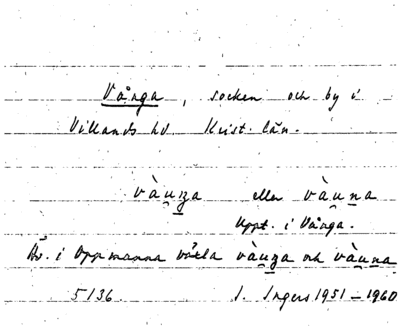 Vånga, socken och by i
Villands hd. Krist. län.
vàu̯ɳa eller vàu̯na
Uppt. i Vånga.
Äv. i Oppmanna växla vàu̯ɳa och vàu̯na
5136. I. Ingers 1951–1960